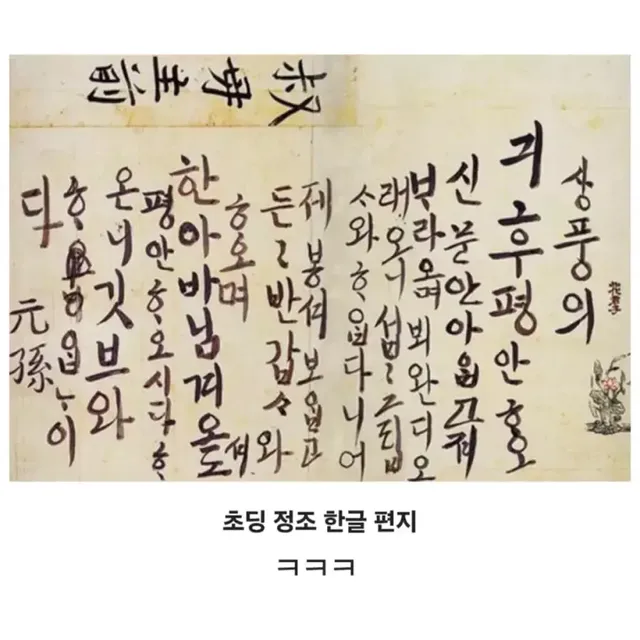 叔母主前
상풍의
긔후평안ᄒᆞ오
신문안아ᄋᆞᆸ고져
ᄇᆞ라ᄋᆞᆸ며 뵈완디오
래오니 섭〻그립
ᄉᆞ와ᄒᆞᄋᆞᆸ다니어
제봉셔보ᄋᆞᆸ고
든〻반갑ᄉᆞ와
ᄒᆞ오며
한아바님겨오셔도
평안ᄒᆞ오시다ᄒᆞ
온니깃브와
ᄒᆞᄋᆞᆸᄂᆞ이
다
元孫
초딩 정조 한글 편지
ㅋㅋㅋ